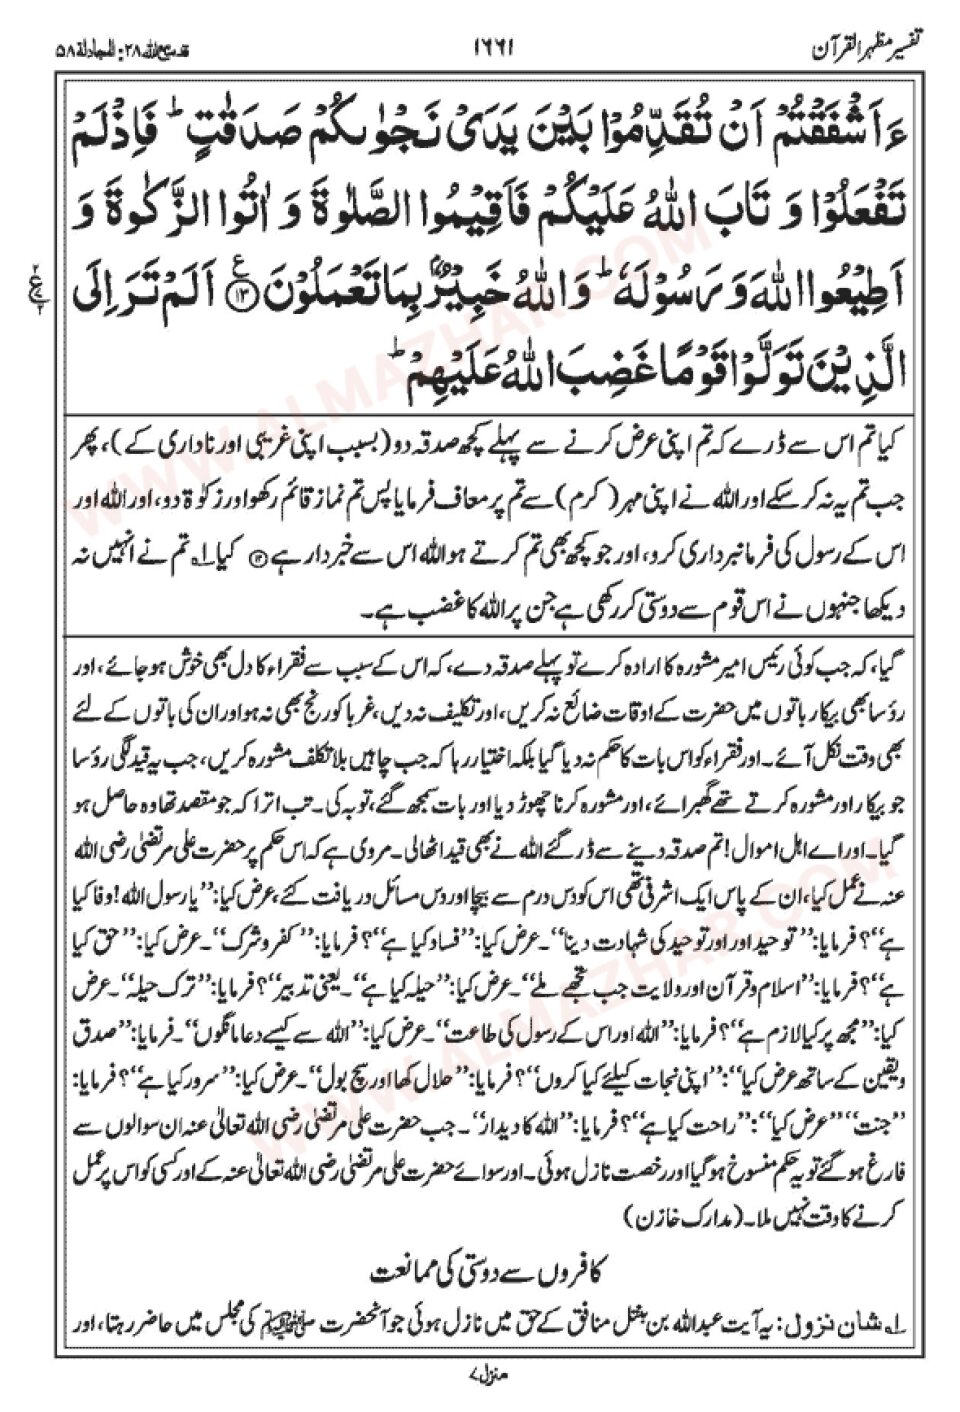 تفسیر مظہر القرآن
۱۶۶۱
قد سمع اللہ ۲۸: المجادلة ۵۸
ءَاَشْفَقْتُمْ اَنْ تُقَدِّمُوْا بَيْنَ يَدَىْ نَجْوٰىكُمْ صَدَقٰتٍ ؕ فَاِذْلَمْ
تَفْعَلُوْا وَ تَابَ اللّٰهُ عَلَيْكُمْ فَاَقِيْمُوا الصَّلٰوةَ وَ اٰتُوا الزَّكٰوةَ وَ
اَطِيْعُوا اللّٰهَ وَ رَسُوْلَهٗ ؕ وَ اللّٰهُ خَبِيْرٌۢ بِمَا تَعْمَلُوْنَ ﴿۱۳﴾ اَلَمْ تَرَ اِلَى
الَّذِيْنَ تَوَلَّوْا قَوْمًا غَضِبَ اللّٰهُ عَلَيْهِمْ ؕ
کیا تم اس سے ڈرے کہ تم اپنی عرض کرنے سے پہلے کچھ صدقہ دو (بسبب اپنی غریبی اور ناداری کے)، پھر
جب تم یہ نہ کر سکے اور اللہ نے اپنی مہر (کرم) سے تم پر معاف فرمایا پس تم نماز قائم رکھو اور زکوٰة دو، اور اللہ اور
اس کے رسول کی فرمانبرداری کرو، اور جو کچھ بھی تم کرتے ہو اللہ اس سے خبردار ہے ﴿۱۳﴾ کیا ۱؎ تم نے انہیں نہ
دیکھا جنہوں نے اس قوم سے دوستی کر رکھی ہے جن پر اللہ کا غضب ہے۔
گیا، کہ جب کوئی رئیس امیر مشورہ کا ارادہ کرے تو پہلے صدقہ دے، کہ اس کے سبب سے فقراء کا دل بھی خوش ہو جائے، اور
رؤسا بھی بیکار باتوں میں حضرت کے اوقات ضائع نہ کریں، اور تکلیف نہ دیں، غربا کو رنج بھی نہ ہو اور ان کی باتوں کے لئے
بھی وقت نکل آئے۔ اور فقراء کو اس بات کا حکم نہ دیا گیا بلکہ اختیار رہا کہ جب چاہیں بلا تکلف مشورہ کریں، جب یہ قید لگی رؤسا
جو بیکار اور مشورہ کرتے تھے گھبرائے، اور مشورہ کرنا چھوڑ دیا اور بات سمجھ گئے، توبہ کی۔ تب اترا کہ جو مقصد تھا وہ حاصل ہو
گیا۔ اور اے اہل اموال! تم صدقہ دینے سے ڈر گئے اللہ نے بھی قید اٹھالی۔ مروی ہے کہ اس حکم پر حضرت علی مرتضیٰ رضی اللہ
عنہ نے عمل کیا، ان کے پاس ایک اشرفی تھی اس کو دس درم سے بیچا اور دس مسائل دریافت کئے، عرض کیا: ’’یا رسول اللہ! وفا کیا
ہے‘‘؟ فرمایا: ’’توحید اور اور توحید کی شہادت دینا‘‘۔ عرض کیا: ’’فساد کیا ہے‘‘؟ فرمایا: ’’کفر و شرک‘‘۔ عرض کیا: ’’حق کیا
ہے‘‘؟ فرمایا: ’’اسلام و قرآن اور ولایت جب تجھے ملے‘‘۔ عرض کیا: ’’حیلہ کیا ہے‘‘۔ یعنی تدبیر‘‘؟ فرمایا: ’’ترک حیلہ‘‘۔ عرض
کیا: ’’مجھ پر کیا لازم ہے‘‘؟ فرمایا: ’’اللہ اور اس کے رسول کی طاعت‘‘۔ عرض کیا: ’’اللہ سے کیسے دعا مانگوں‘‘۔ فرمایا: ’’صدق
و یقین کے ساتھ عرض کیا‘‘: ’’اپنی نجات کیلئے کیا کروں‘‘؟ فرمایا: ’’حلال کھا اور سچ بول‘‘۔ عرض کیا: ’’سرور کیا ہے‘‘؟ فرمایا:
’’جنت‘‘ ’’عرض کیا‘‘: ’’راحت کیا ہے‘‘؟ فرمایا: ’’اللہ کا دیدار‘‘۔ جب حضرت علی مرتضیٰ رضی اللہ تعالیٰ عنہ ان سوالوں سے
فارغ ہو گئے تو یہ حکم منسوخ ہو گیا اور رخصت نازل ہوئی۔ اور سوائے حضرت علی مرتضیٰ رضی اللہ تعالیٰ عنہ کے اور کسی کو اس پر عمل
کرنے کا وقت نہیں ملا۔ (مدارک خازن)
کافروں سے دوستی کی ممانعت
۱؎ شان نزول: یہ آیت عبداللہ بن بنتل منافق کے حق میں نازل ہوئی جو آنحضرت ﷺ کی مجلس میں حاضر رہتا، اور
منزل ۷
WWW.ALMAZHAR.COM
WWW.ALMAZHAR.COM